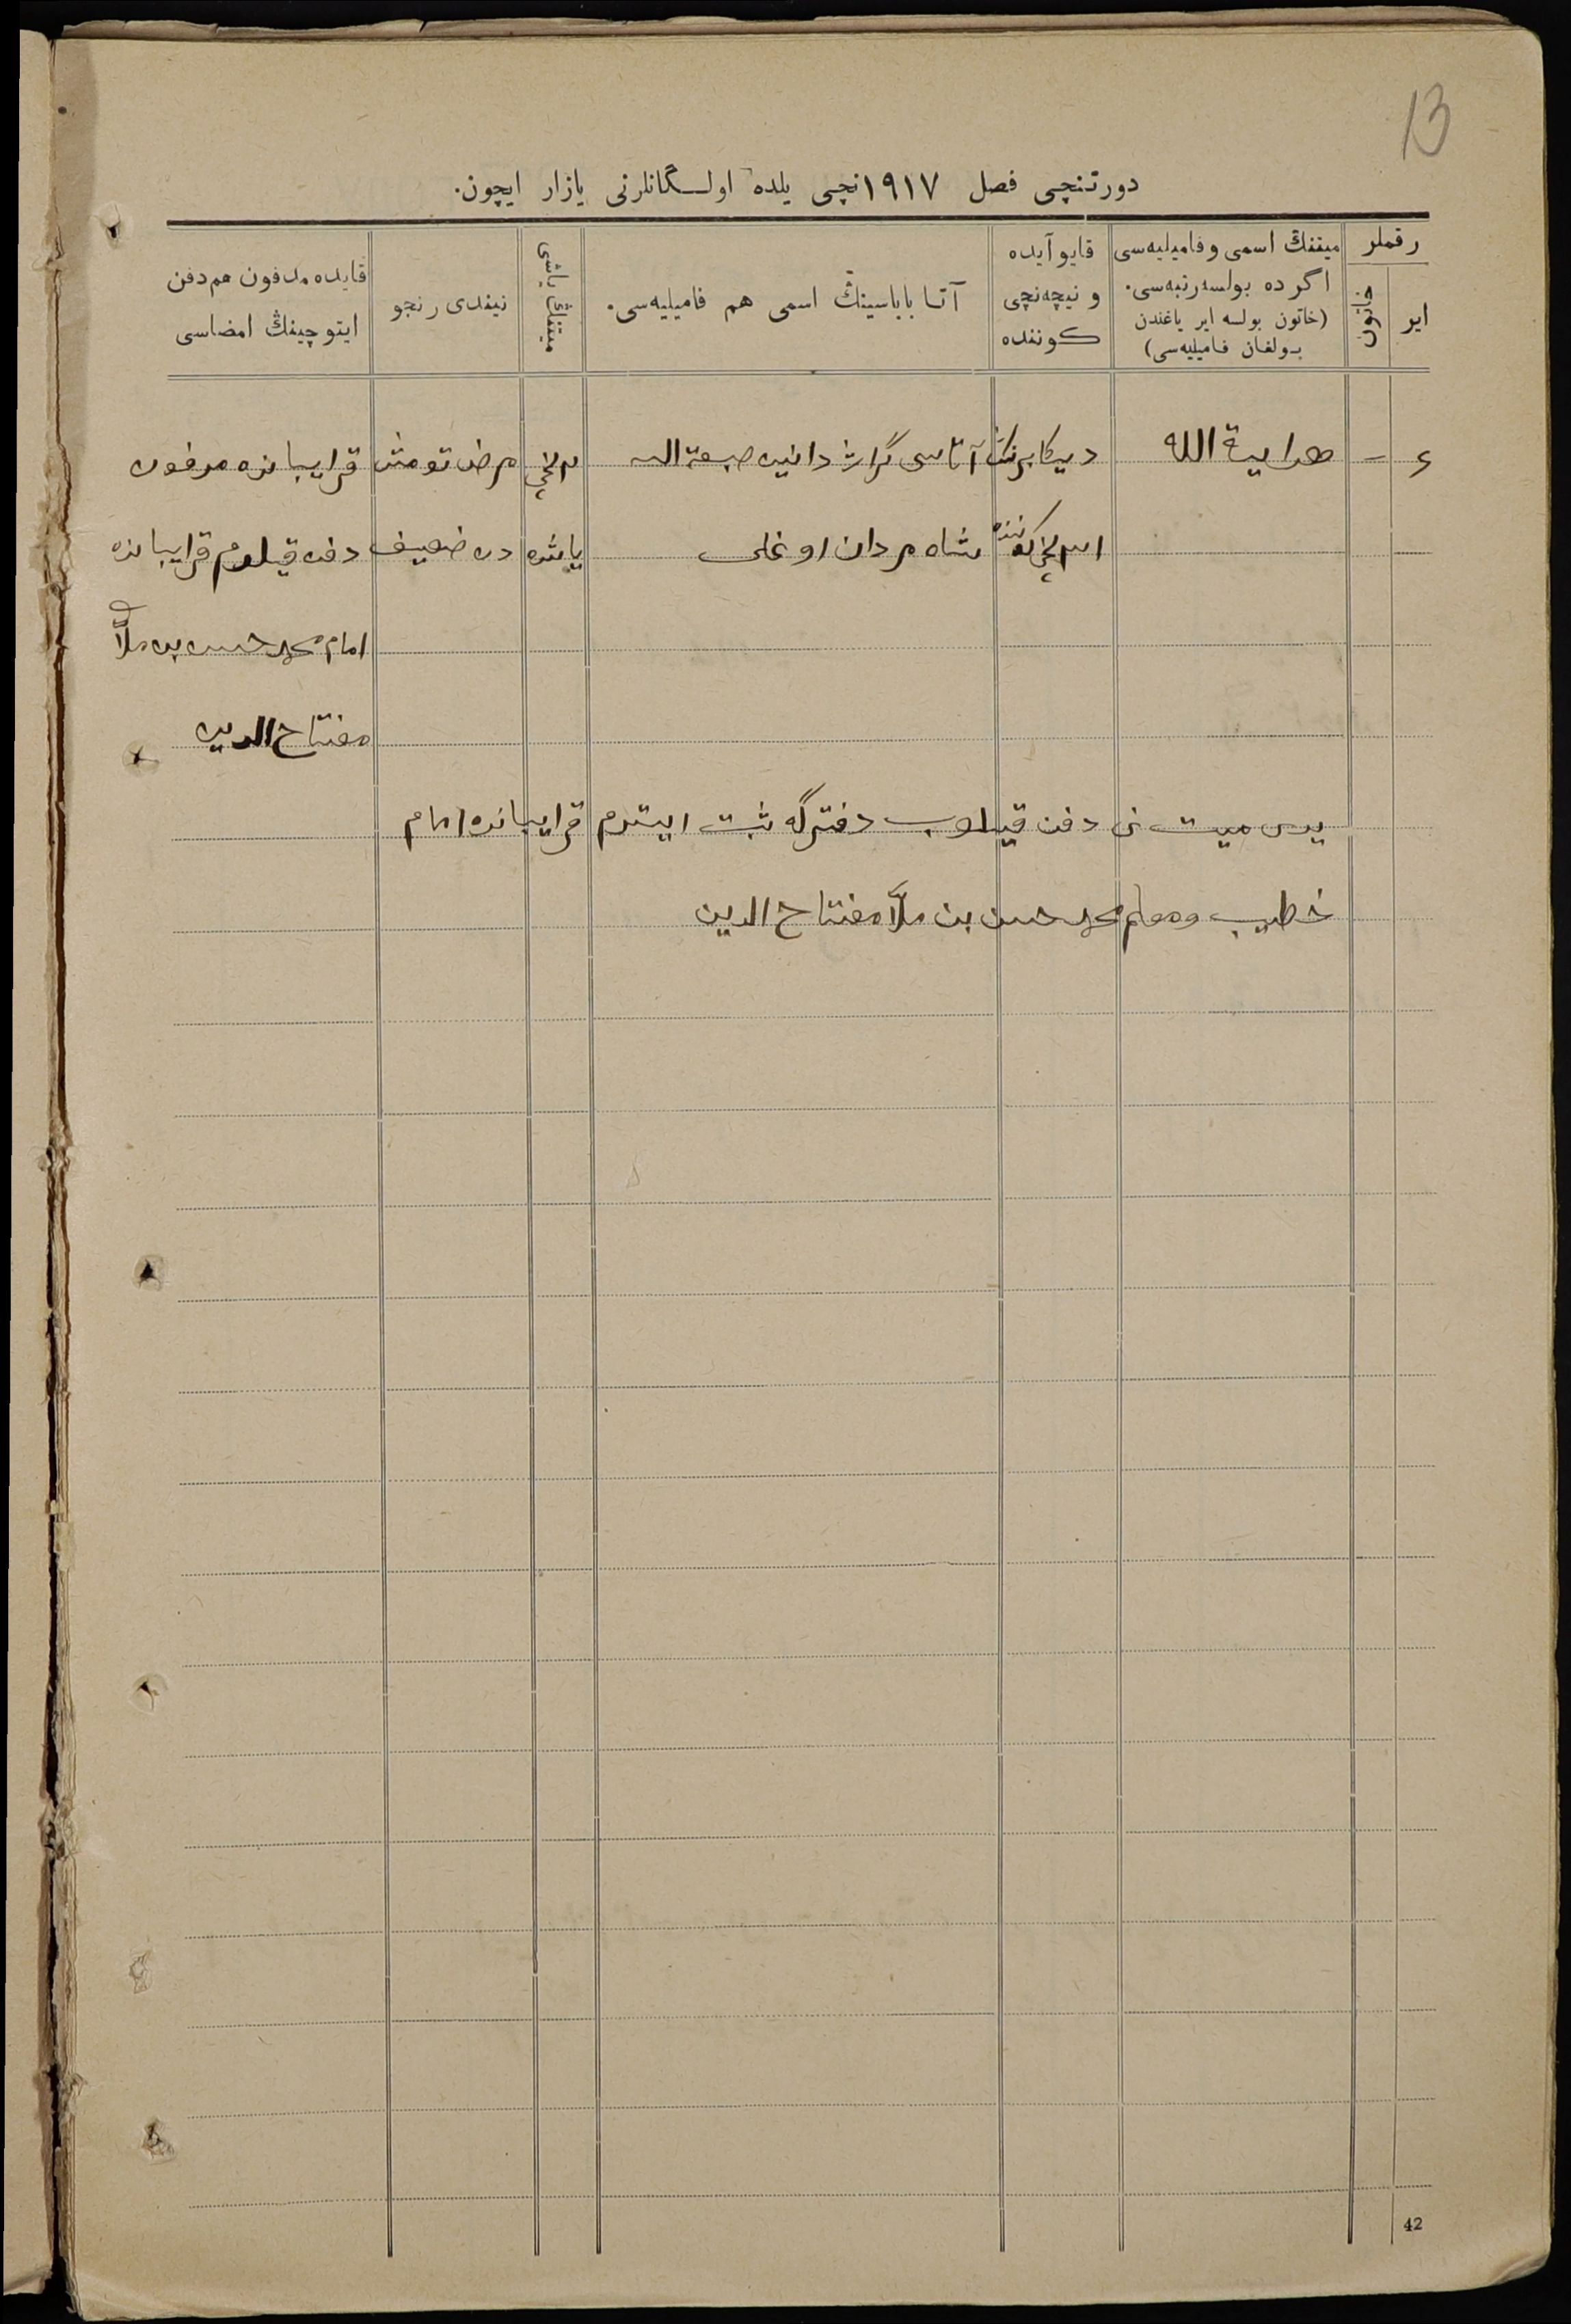 13
دورتنچی فصل ۱۹۱۷نچی یلده اولـگانلرنی یازار ایچون.
رقملر
ایر
خاتون
میتنڭ اسمی و فامیلیه‌سی
اگر ده بولسه رتبه‌سی.
(خاتون بولسه ایر یاغندن
بولغان فامیلیه‌سی)
قایو آیده
و نیچه‌نچی
كوننده
آتا باباسینڭ اسمی هم فامیلیه‌سی.
میتنڭ یاشی
نیندی رنجو
قایده مدفون هم دفن
ایتوچینڭ امضاسی
۴ – هدایة الله دیكابرنڭ آتاسی گراژدانین صبغة الله مرض تومش قرایباندە مدفون
كوننده شاه مردان اوغلی یاشده دن ضعیف دفن قیلدم قرایباندە
امام محمد حسن بن ملاَّ
مفتاح الدین
میت نی دفن قیلوب دفترگه ثبت ایتدم قرایباندە امام
خطیب ومعلم محمد حسن بن ملاَّ مفتاح الدین
42